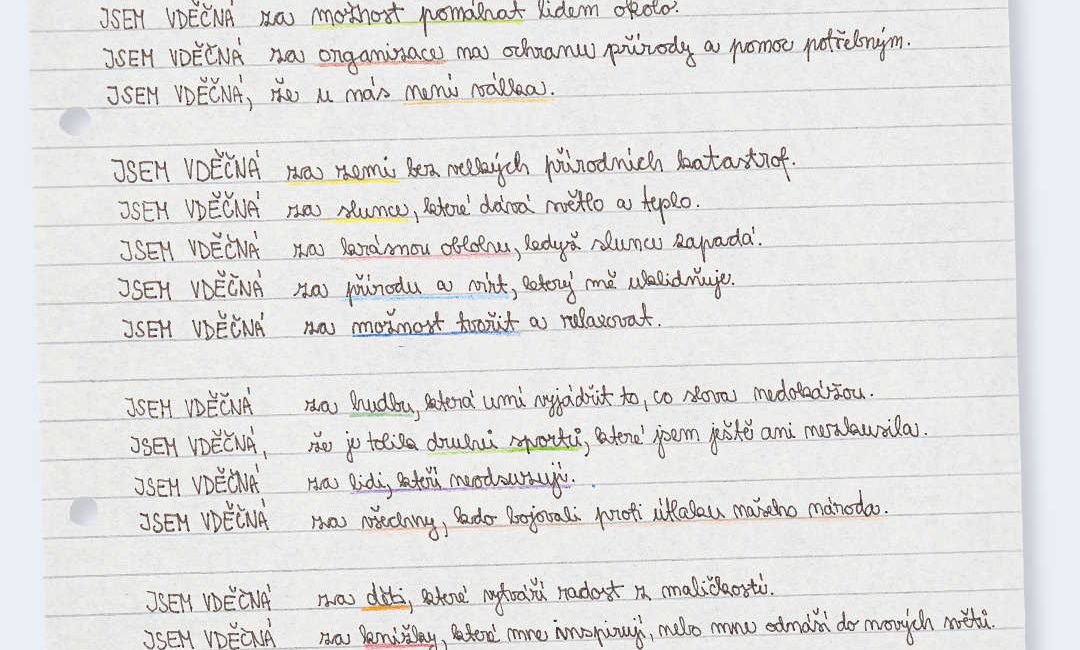 JSEM VDĚČNÁ za možnost pomáhat lidem okolo.
JSEM VDĚČNÁ za organizace na ochranu přírody a pomoc potřebným.
JSEM VDĚČNÁ, že u nás není válka.
JSEM VDĚČNÁ za zemi bez velkých přírodních katastrof.
JSEM VDĚČNÁ za slunce, které dává světlo a teplo.
JSEM VDĚČNÁ za krásnou oblohu, když slunce zapadá.
JSEM VDĚČNÁ za přírodu a vírt, který mě uklidňuje.
JSEM VDĚČNÁ za možnost tvořit a relaxovat.
JSEM VDĚČNÁ za hudbu, která umí vyjádřit to, co slova nedokážou.
JSEM VDĚČNÁ, že je tolik druhů sportů, které jsem ještě ani nezkusila.
JSEM VDĚČNÁ za lidi, kteří neodsuzují.
JSEM VDĚČNÁ za všechny, kdo bojovali proti útlaku našeho národa.
JSEM VDĚČNÁ za děti, které vytváří radost z maličkostí.
JSEM VDĚČNÁ za knížky, které mne inspirují, nebo mne odnáší do nových světů.